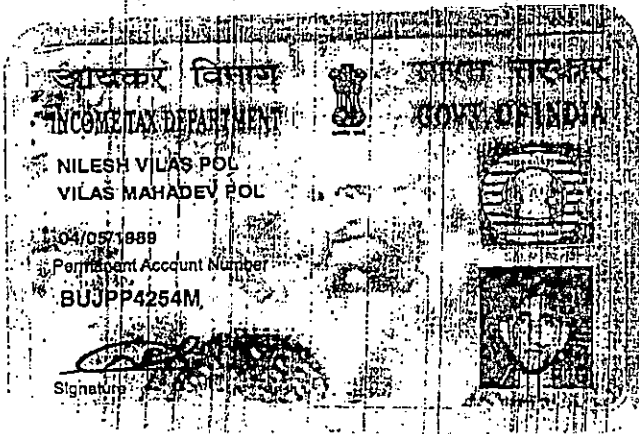 आयकर विभाग
भारत सरकार
INCOME TAX DEPARTMENT
GOVT. OF INDIA
NILESH VILAS POL
VILAS MAHADEV POL
04/05/1989
Permanent Account Number
BUJPP4254M
Signature